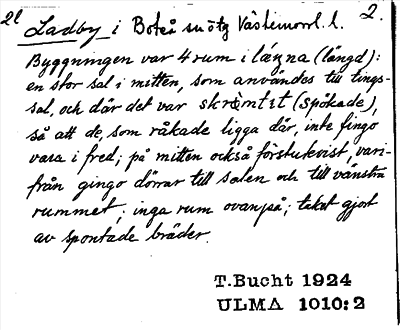 2l
2.
Ladby i Boteå snötg Västernorrl. l.
Byggningen var 4 rum i läŋna (längd):
en stor sal i mitten, som användes till tings-
sal, och där det var skrømtit (spökade),
så att de, som råkade ligga där, inte fingo
vara i fred; på mitten också förstukvist, vari-
från gingo dörrar till salen och till vänstra
rummet; inga rum ovanpå; taket gjort
av spontade bräder.
T.Bucht 1924
ULMA 1010:2